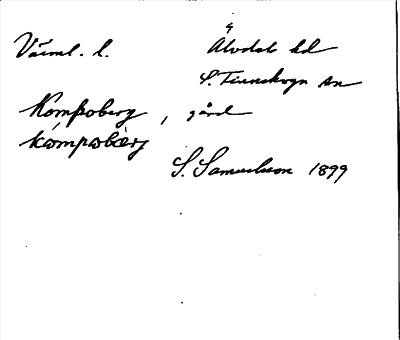 Värml. l. Älvdals hd
S. Finnskoga sn
Kompoberg, gård
kòmpobàrj
S. Samuelsson 1899